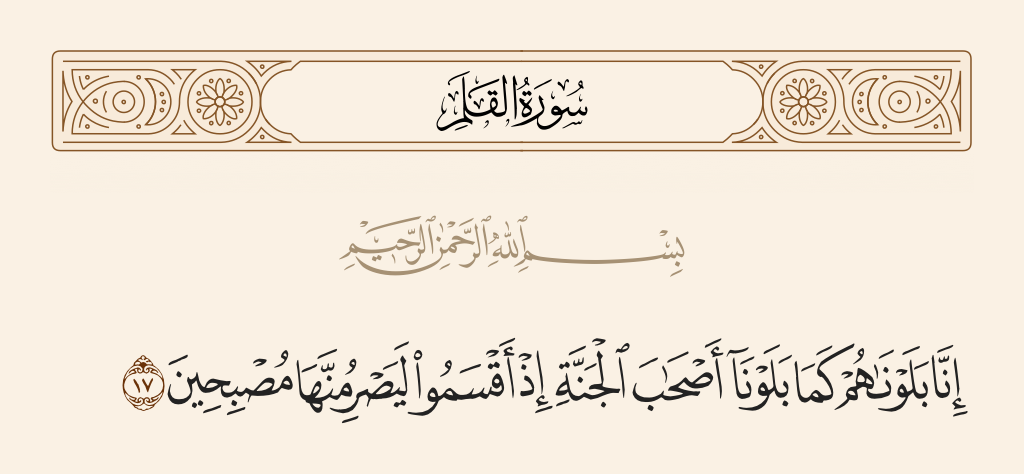 سُورَةُ القَلَمِ
بِسْمِ ٱللَّهِ ٱلرَّحْمَٰنِ ٱلرَّحِيمِ
إِنَّا بَلَوْنَٰهُمْ كَمَا بَلَوْنَآ أَصْحَٰبَ ٱلْجَنَّةِ إِذْ أَقْسَمُوا۟ لَيَصْرِمُنَّهَا مُصْبِحِينَ ١٧